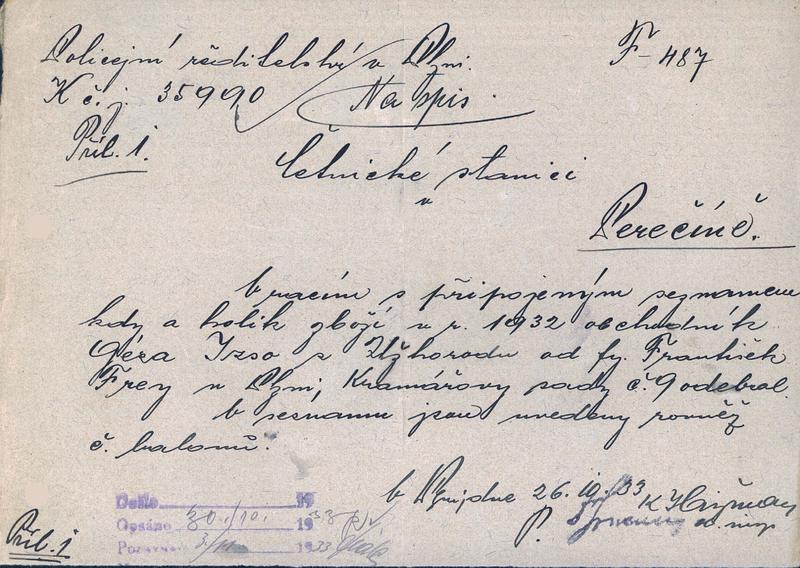 Policejní ředitelství v Plzni.
F-487
K č. j. 35990
Na spis.
Příl. 1.
Četnické stanici
v
Perečíně.
Vracím s připojeným seznamem
kdy a kolik zboží v r. 1932 obchodník
Géza Izso z Užhorodu od fy. František
Frey v Plzni, Kramářovy sady č. 9 odebral.
V seznamu jsou uvedeny rovněž
č. balonů.
V Plzni, dne 26. 10. 33
P.
Došlo 19
Opsáno 30./10. 1933
3/11 1933
Příl. 1